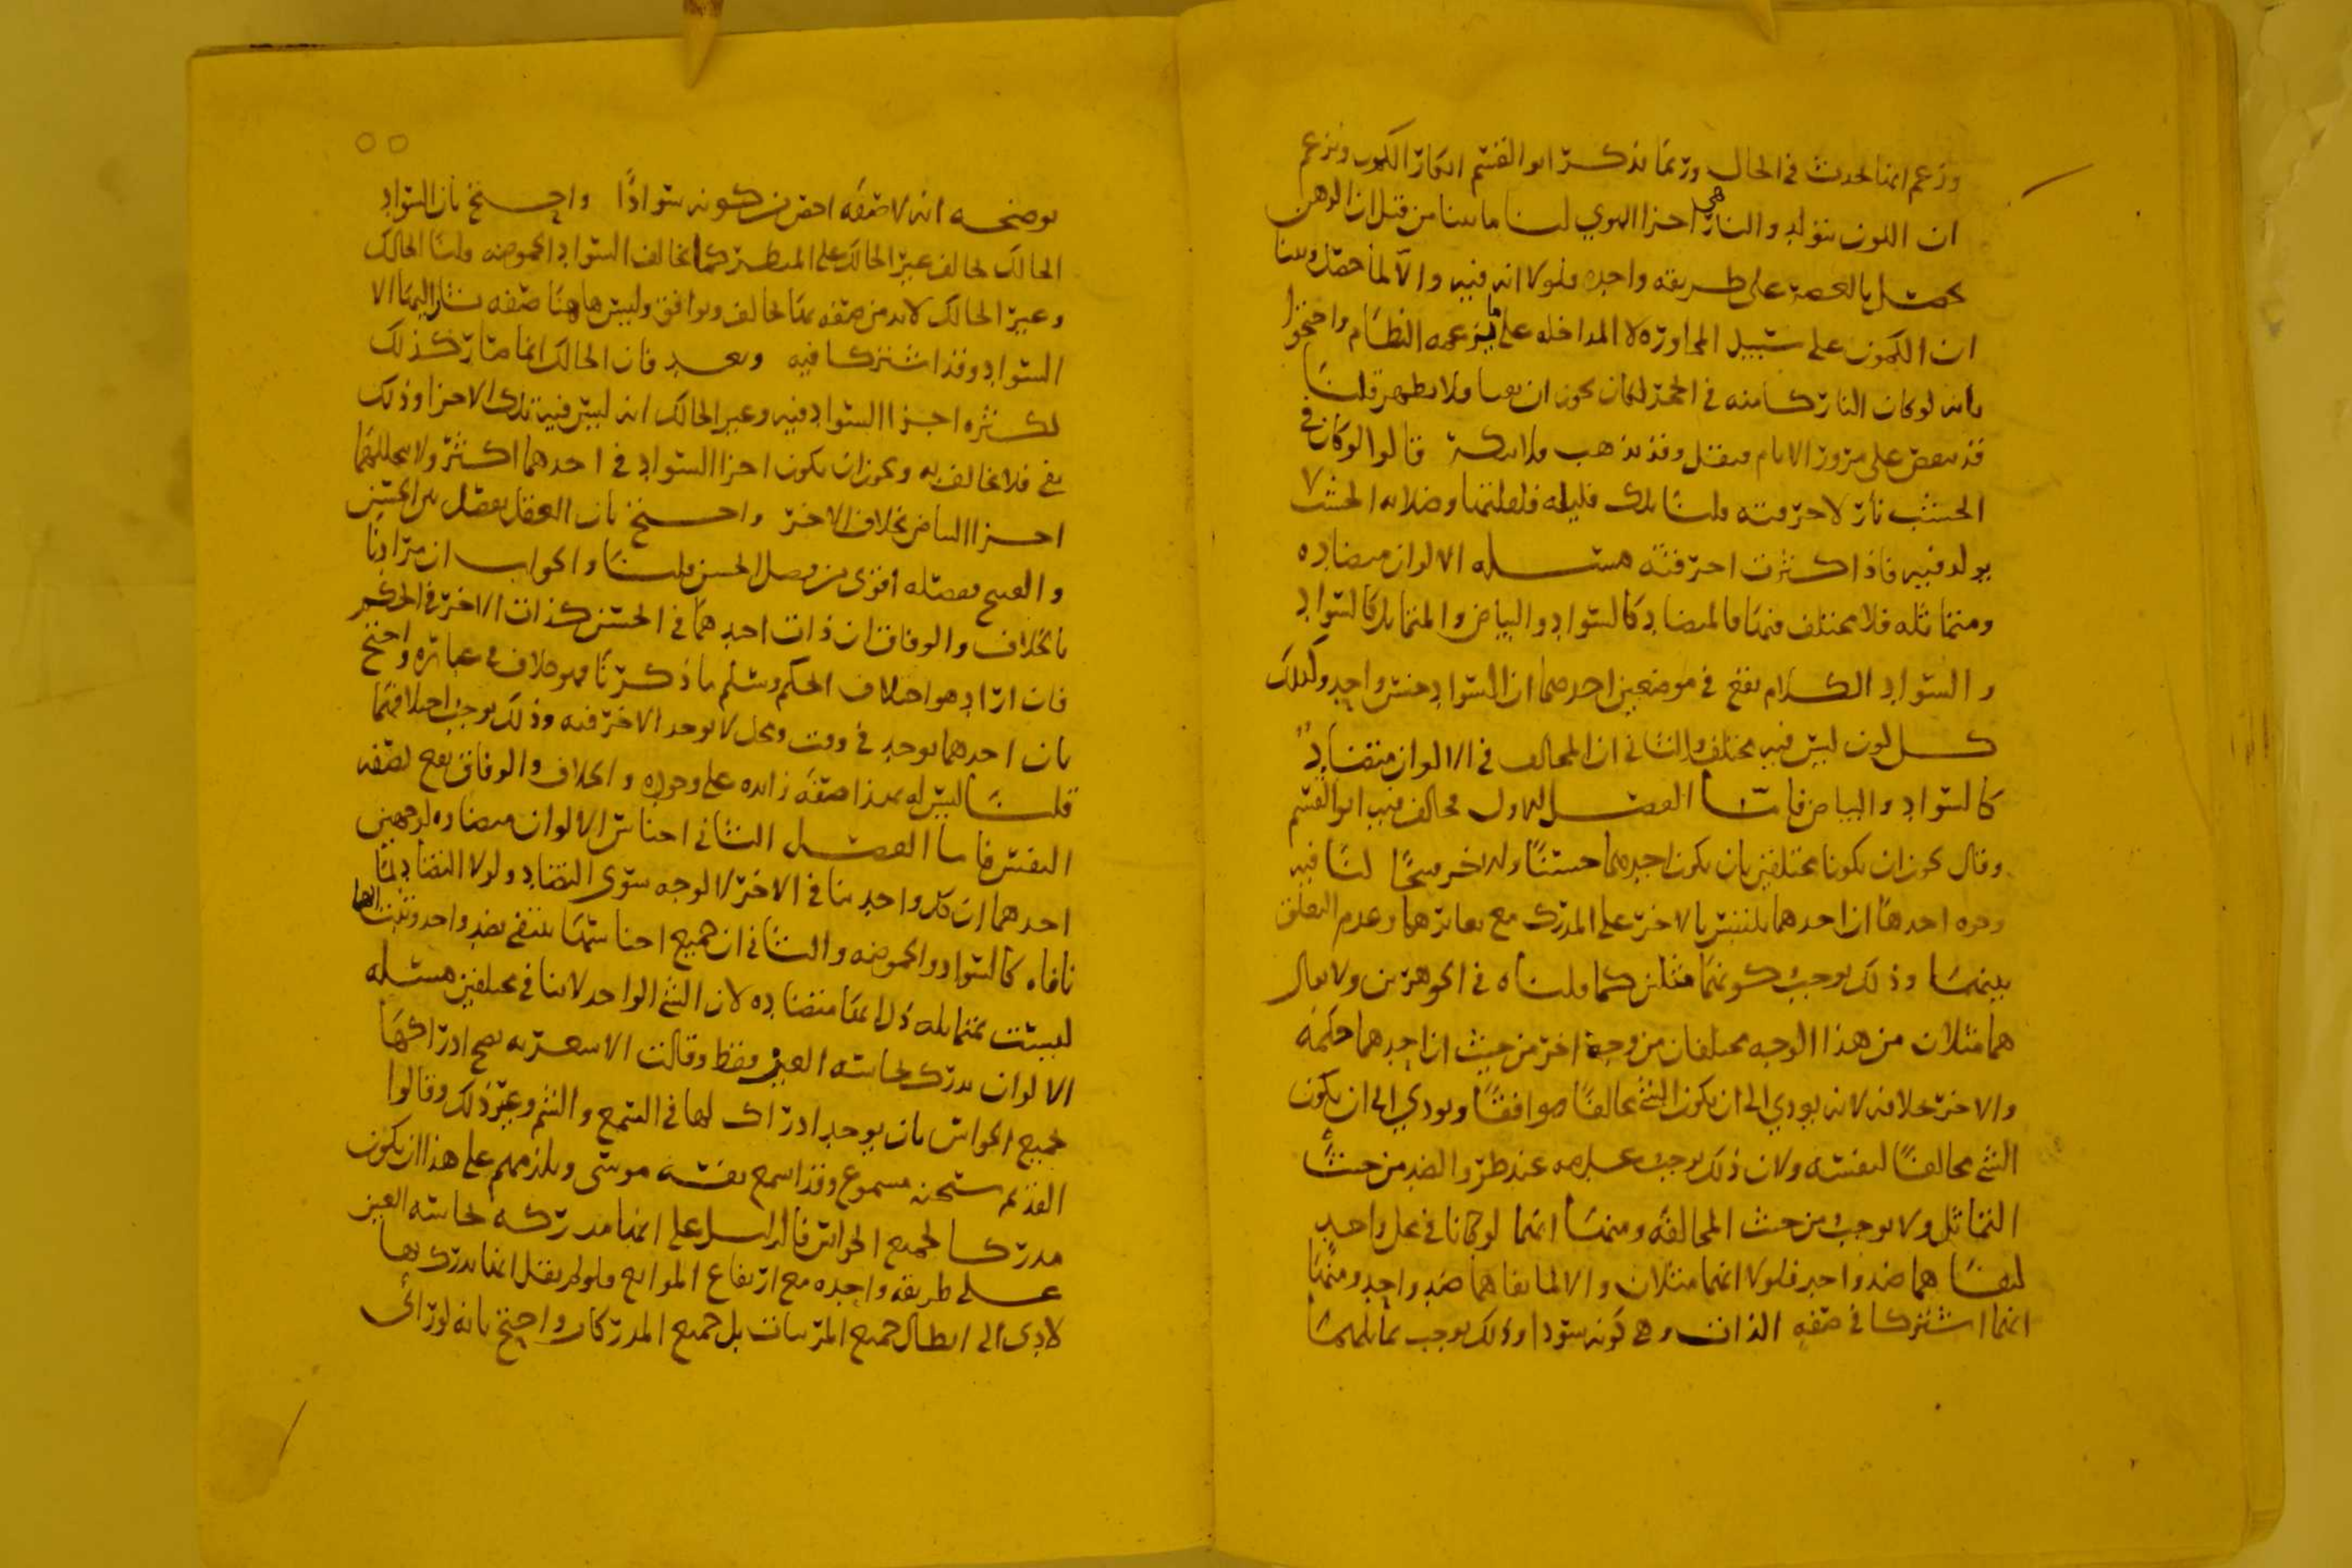 وزعم انها تحدث في الحال وربما يذكر ابو القسم انكار الكمون ويزعم
ان اللون يتولد والنار هي احزا الهوي لنا ما بينا من قبل ان الدهن
يحصل بالعصر على طريقه واحده فلولا انه فيه والا لما حصل وبينا
ان الكمون على سبيل المجاوره لا المداخله على ما يزعمه النظام واحتجوا
بانه لو كان النار كامنه في الحجر لكان يجوز ان ولا يظهر قلنا
قد ينقص على مرور الايام فيقل وقد يذهب قالوا لو كان في
الخشب نار لاحرقته قلنا تلك قليله فلقلتها وصلابه الخشب لا
فيه فاذا كثرت احرقته مسله الالوان متضاده
ومتماثله فلا مختلف فيها فالمتضاد كالسواد والبياض والمتماثل كالسواد
والسواد الكلام يقع في موضعين احدهما ان السواد جنس واحد وكذلك
كل لون ليس فيه مختلف والثاني ان المخالف في الالوان متضاد
كالسواد والبياض فاما الفصل الاول فخالف فيه ابو القسم
وقال يجوز ان يكونا مختلفين بان يكون احدهما حسنا والاخر قبيحا لنا فيه
وجوه احدها ان احدهما يلتبس بالاخر على المدرك مع تغايرهما وعدم التعلق
بينهما وذلك يوجب كونهما مثلين كما قلناه في الجوهرين ولا يقال
هما مثلان من هذا الوجه مختلفان من وجه اخر من حيث ان احدهما حكمه
والاخر خلافه لانه يودي الى ان يكون الشي مخالفا موافقا ويودي الى ان يكون
الشي مخالفا لنفسه ولان ذلك يوجب عند طرو الضد من حيث
التماثل ولا يوجب من حيث المخالفه ومنها انهما لو كانا في محل واحد
لنفاهما ضد واحد فلولا انهما مثلان والا لما نفاهما ضد واحد ومنها
انهما اشتركا في صفه الذات وهي كونه سوادا وذلك يوجب تماثلهما
يوضحه انه لا صفه اخص من كونه سوادا واحتج بان السواد
الحالك يخالف غير الحالك على المنظر كما يخالف السواد الحموضه قلنا الحالك
وغير الحالك لابد من صفه بها يخالف ويوافق وليس هاهنا صفه يشار اليها الا
السواد وقد اشتركا فيه وبعد فان الحالك انما صار كذلك
لكثره اجزا السواد فيه وغير الحالك انه ليس فيه تلك الاجزا وذلك
فلا يخالف به ويجوز ان يكون اجزا السواد في احدهما اكثر ولا يتخللهما
اجزا البياض بخلاف الاخر واحتج بان العقل يفصل بين الحسن
والقبيح بفصله اقوى من فصل الحسن قلنا والجواب ان مرادنا
بالخلاف والوفاق ان ذات احدهما في الحسن كذات الاخر في الحكم
فان اراد هو اختلاف الحكم وسلم ما ذكرنا فهو خلاف في عباره واحتج
بان احدهما يوجد في وقت ومحل لا يوجد الاخر فيه وذلك يوجب اختلافهما
قلنا ليس له بهذا صفه زايده على وجوده والخلاف والوفاق يقع لصفه
النفس فاما الفصل الثاني اجناس الالوان متضاده لوجهين
احدهما ان كل واحد ينافي الاخر لا لوجه سوى التضاد ولولا التضاد لما
نافاه كالسواد والحموضه والثاني ان جميع اجناسها ينتفي بضد واحد وثبت انها
ليست بمتماثله انها متضاده لان الشي الواحد لا ينافي مختلفين مسله
الالوان تدرك بحاسه العين فقط وقالت الاشعريه يصح ادراكها
بجميع الحواس بان يوجد ادراك لها في السمع والشم وغير ذلك وقالوا
القديم سبحنه مسموع وقد اسمع نفسه موسى ويلزمهم على هذا ان يكون
مدركا لجميع الحواس فالدليل على انها مدركه بحاسه العين
على طريقه واحده مع ارتفاع الموانع فلو لم يقل انها تدرك بها
لادى الى ابطال جميع المرئيات بل جميع المدركات واحتج بانه لو راى